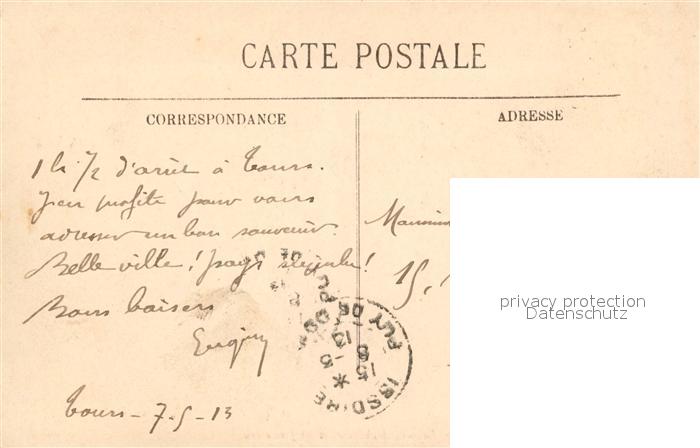 CARTE POSTALE
CORRESPONDANCE
ADRESSE
1 h 1/2 d'arrêt à Tours.
J'en profite pour vous
adresser un bon souvenir.
Belle ville! pays superbe!
Bons baisers
Tours - 7-5-13
15,
privacy protection
Datenschutz
ISSOIRE
PUY DE DOME
15 8
-5
13